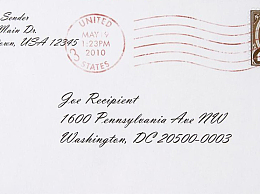 Sender
Main Dr.
town, USA 12345
UNITED
MAY
1:23PM
2010
STATES
Joe Recipient
1600 Pennsylvania Ave NW
Washington, DC 20500-0003